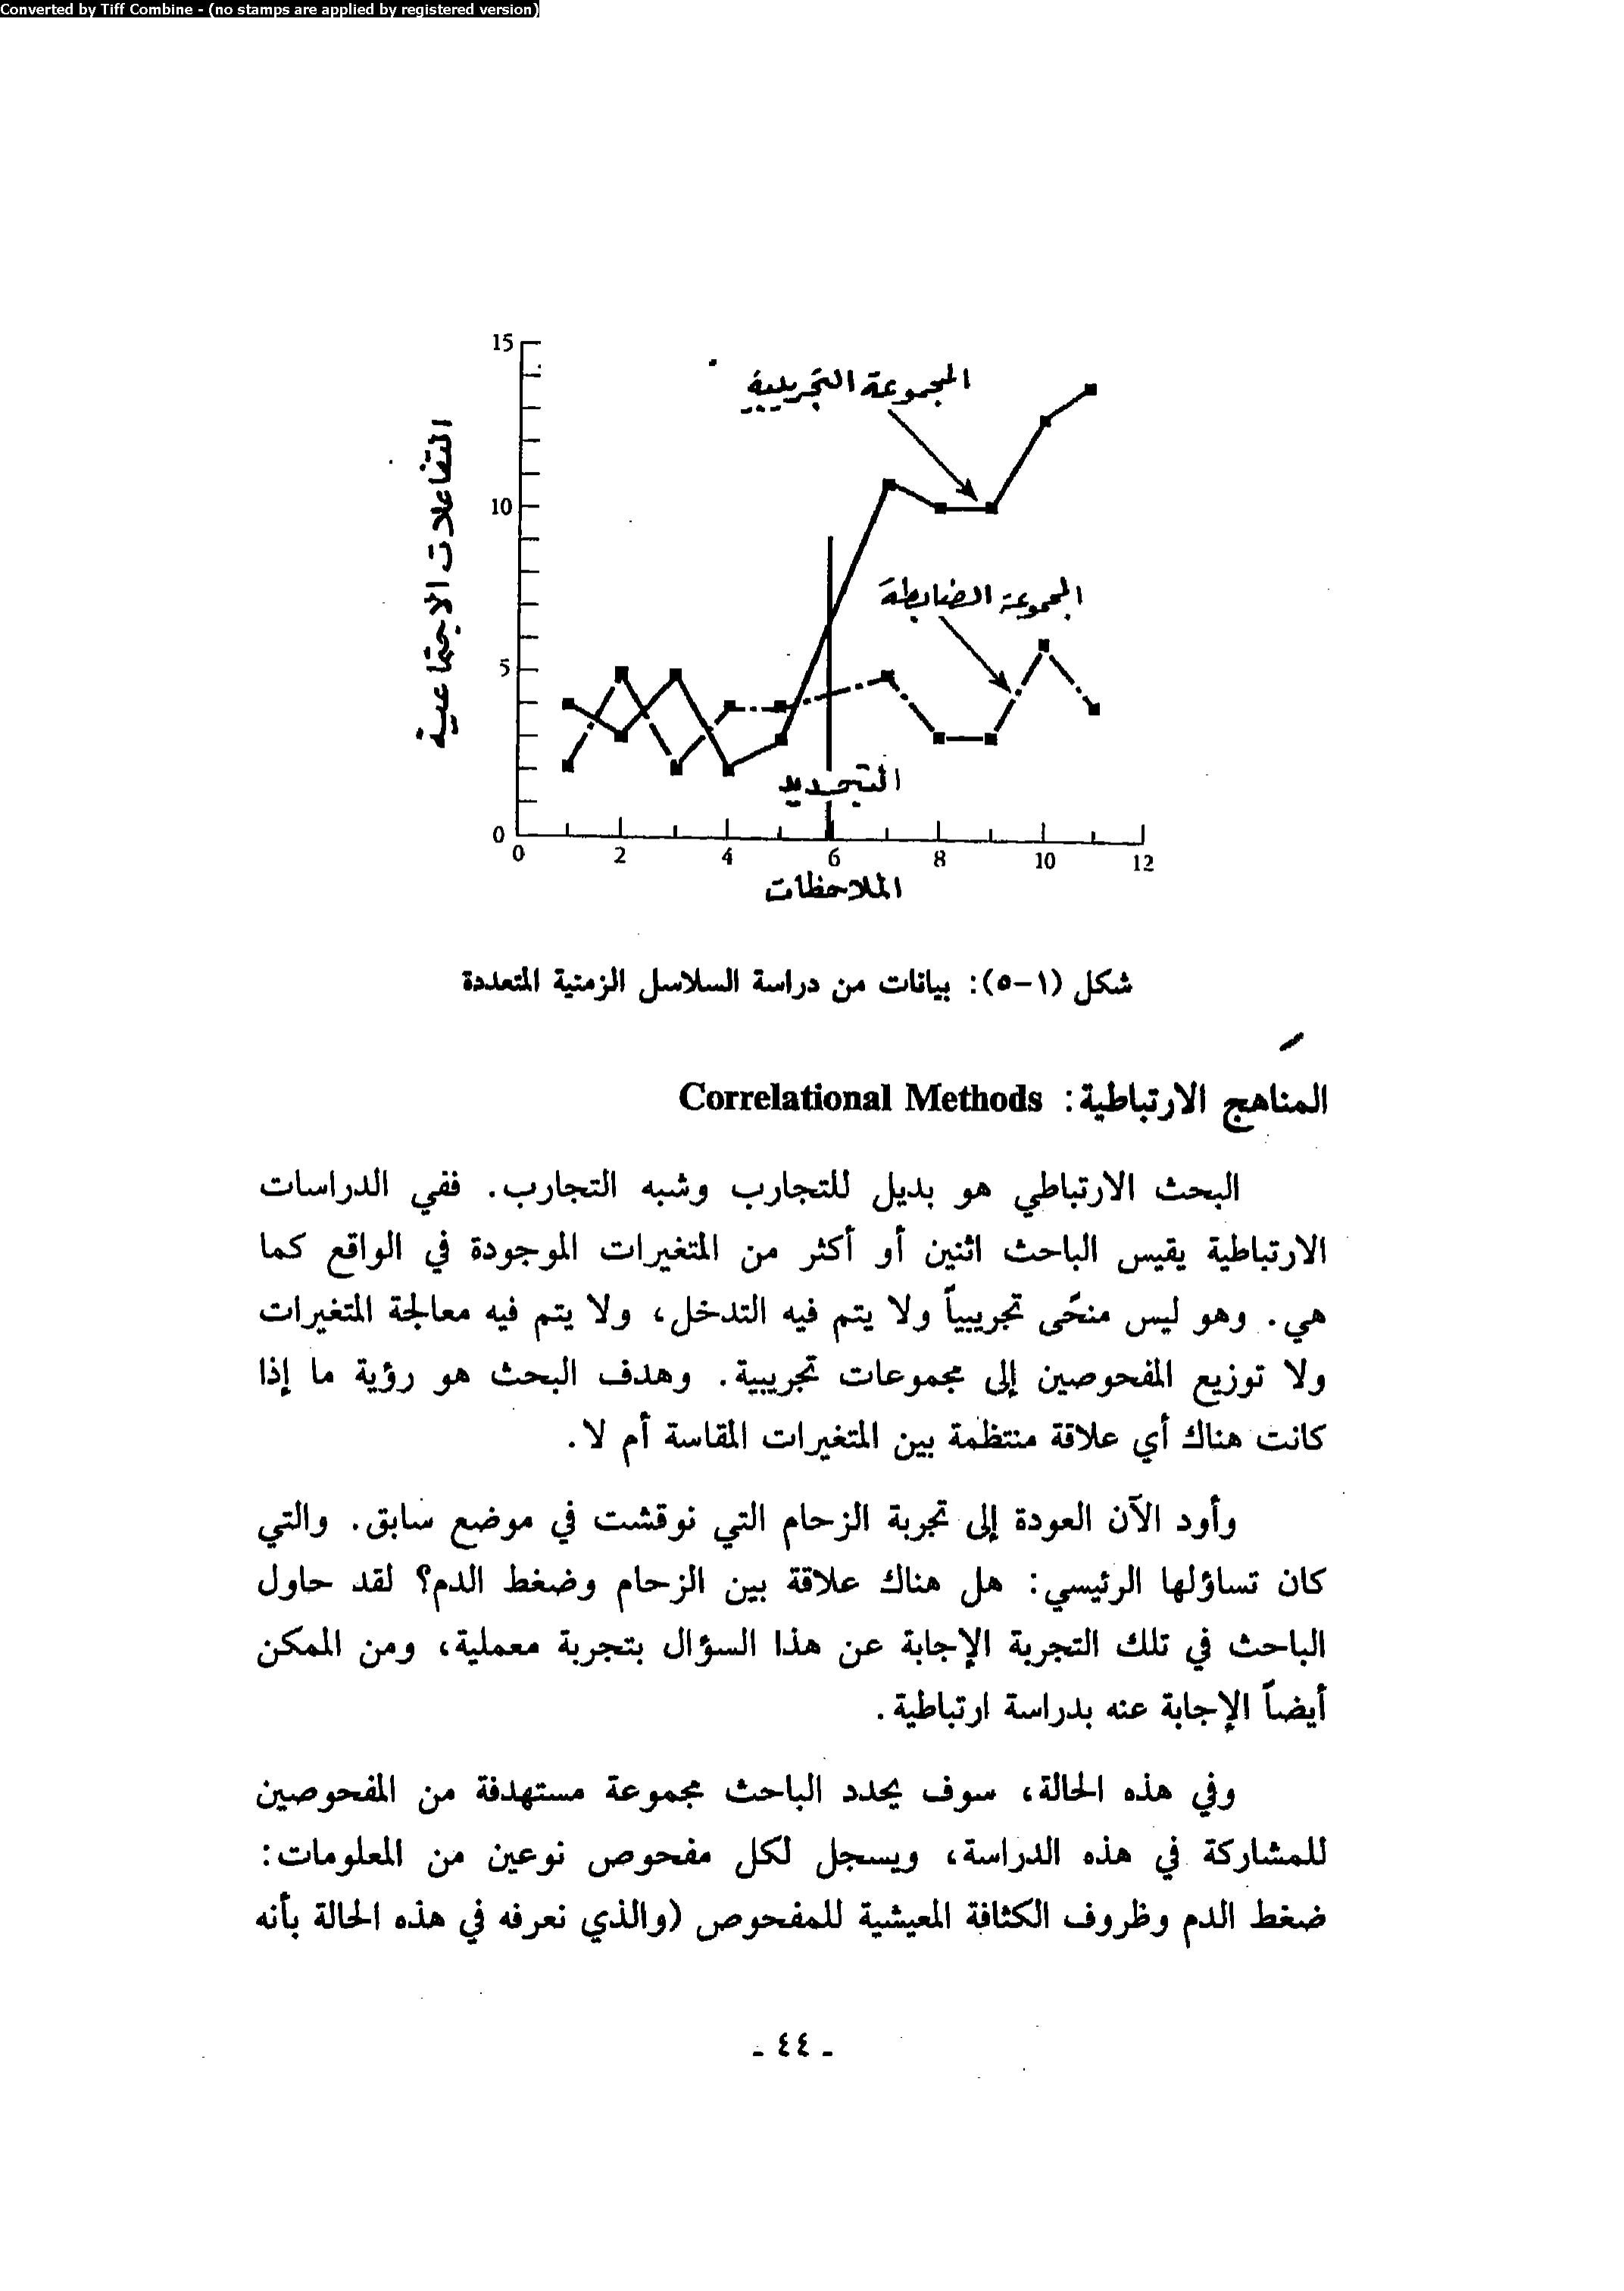 Converted by Tiff Combine - (no stamps are applied by registered version)
15
10
5
0
التفاعلات الاجتماعية
المجموعة التجريبية
المجموعة الضابطة
التجديد
0 2 4 6 8 10 12
الملاحظات
شكل (١-٥): بيانات من دراسة السلاسل الزمنية المتعددة
المناهج الارتباطية: Correlational Methods
البحث الارتباطي هو بديل للتجارب وشبه التجارب. ففي الدراسات
الارتباطية يقيس الباحث اثنين أو أكثر من المتغيرات الموجودة في الواقع كما
هي. وهو ليس منحًى تجريبياً ولا يتم فيه التدخل، ولا يتم فيه معالجة المتغيرات
ولا توزيع المفحوصين إلى مجموعات تجريبية. وهدف البحث هو رؤية ما إذا
كانت هناك أي علاقة منتظمة بين المتغيرات المقاسة أم لا.
وأود الآن العودة إلى تجربة الزحام التي نوقشت في موضع سابق. والتي
كان تساؤلها الرئيسي: هل هناك علاقة بين الزحام وضغط الدم؟ لقد حاول
الباحث في تلك التجربة الإجابة عن هذا السؤال بتجربة معملية، ومن الممكن
أيضاً الإجابة عنه بدراسة ارتباطية.
وفي هذه الحالة، سوف يحدد الباحث مجموعة مستهدفة من المفحوصين
للمشاركة في هذه الدراسة، ويسجل لكل مفحوص نوعين من المعلومات:
ضغط الدم وظروف الكثافة المعيشية للمفحوص (والذي نعرفه في هذه الحالة بأنه
- ٤٤ -